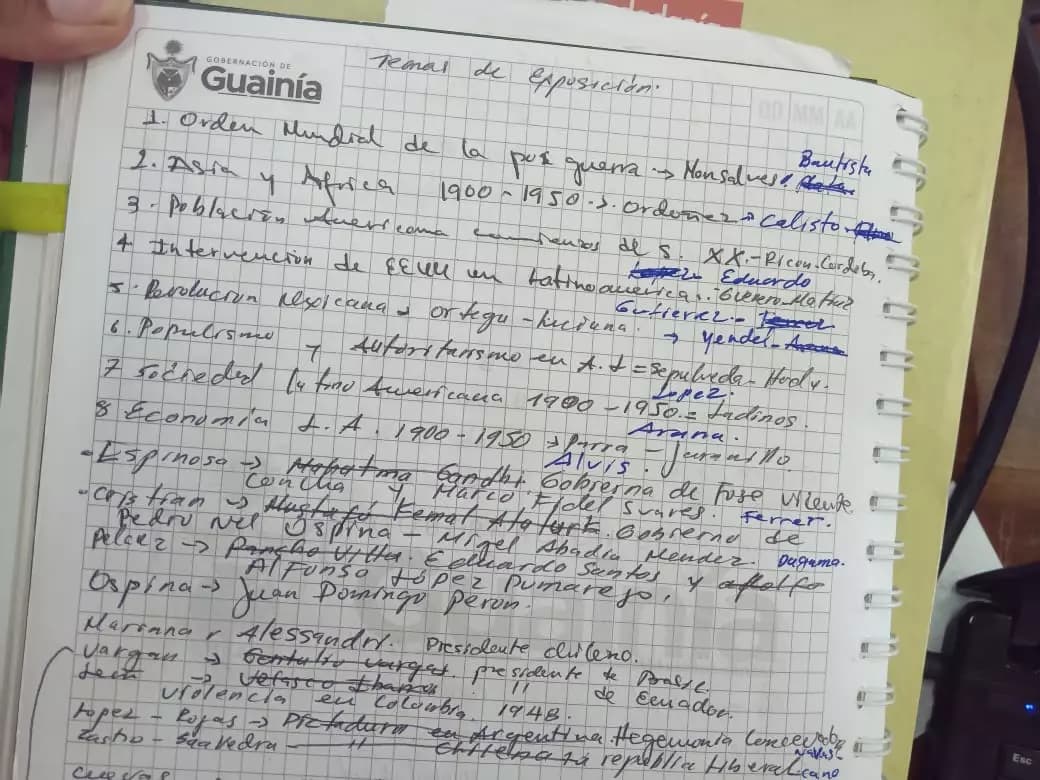 GOBERNACIÓN DE
Guainía
DD MM AA
Temas de exposición.
1. Orden Mundial de la pos guerra → Monsalves Bautista
2. Asia y África 1900-1950. → Ordoñez → Calisto
3. Población Americana comienzos de S. XX. - Ricon. Cordoba.
4 Intervención de EEUU en Latinoamerica. Eduardo
5. Revolución Mexicana → Ortega - Luciana. Gutierrez -
6. Populismo y Autoritarismo en A. L = Sepulveda - Hody. → Yendel -
7 Sociedad Latino Americana 1900-1950 = Ladinos. Lopez.
8 Economía L. A. 1900-1950 → Parra - Jaramillo. Arana.
- Espinosa → Mahatma Gandhi. Alvis. Gobierna de Jose Vicente
Concha y Marco Fidel Suares. Ferrer.
- Cristian → Mustafá Kemal Ataturk. Gobierno de
Pedro Nel Ospina - Migel Abadia Mendez. Daguma.
Pelaez → Pancho Villa. Eduardo Santos y
Alfonso López Pumarejo,
Ospina → Juan Domingo Peron.
Mariana r Alessandri. Presidente chileno.
Vargan → Gentulio Vargas. presidente de Brasil.
→ Velasco Ibarra. " de Ecuador.
violencia en Colombia. 1948.
Lopez - Rojas → Dictadura en Argentina. Hegemonía
- Saavedra - " Chilena la republica liberal
Cuevas
Esc